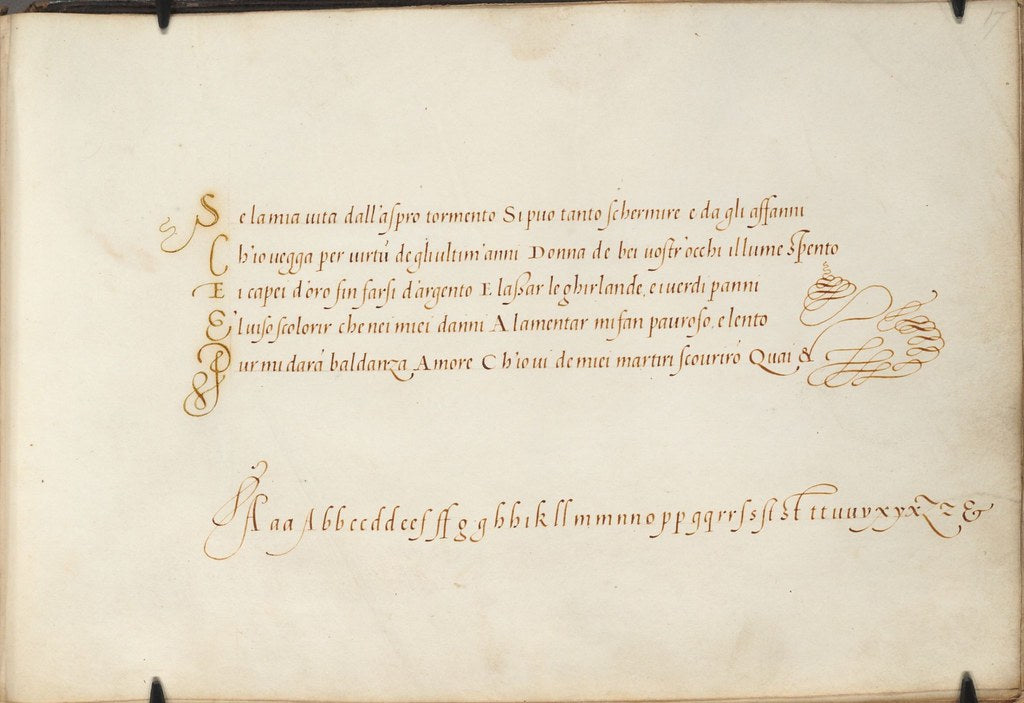 17
Se la mia uita dall'aspro tormento Si puo tanto schermire e da gli affanni
Ch'io uegga per uirtù de gli ultim'anni Donna de bei uostr'occhi il lume spento
E i capei d'oro fin farsi d'argento E lassar le ghirlande, e i uerdi panni
E'l uiso scolorir che nei miei danni A lamentar mi fan pauroso, e lento
Pur mi darà baldanza Amore Ch'io ui de miei martiri scouriro Quai &
A a a A b b c c d d e e f ff g g h h i k l l m m n n o p p q q r r s s st st t t u u y x y x z z &